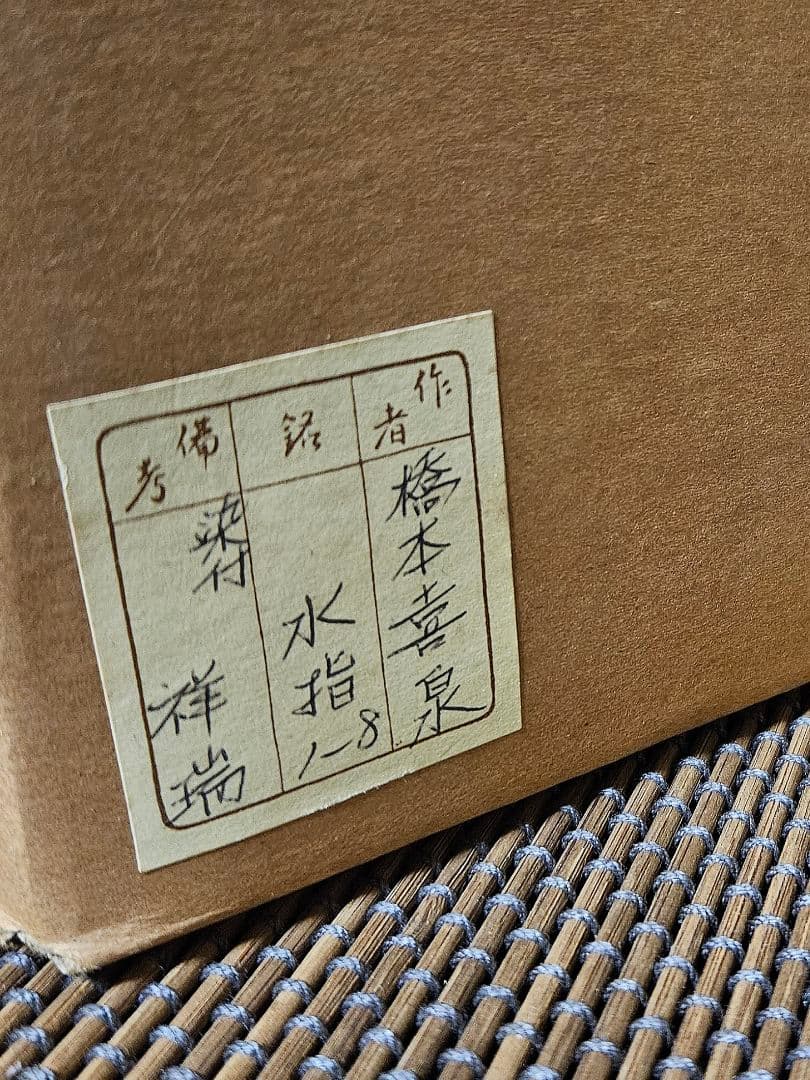 作者
橋本喜泉
銘
水指
1-8
備考
染付
祥瑞